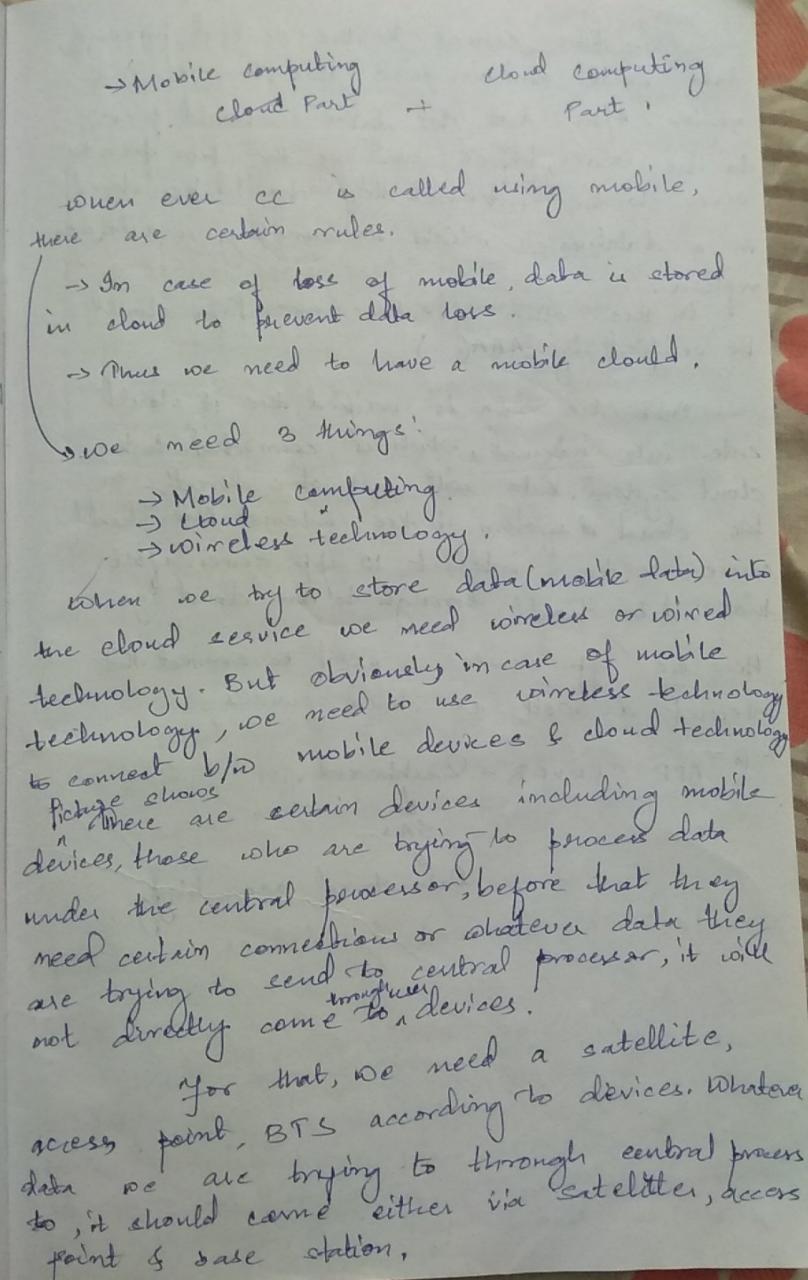 → Mobile computing cloud computing
cloud Part + Part.
when ever cc is called using mobile,
there are certain rules.
→ In case of loss of mobile, data is stored
in cloud to prevent data loss.
→ Thus we need to have a mobile clould.
→ we need 3 things:
→ Mobile computing.
→ Cloud "
→ wireless technology.
When we try to store data (mobile data) into
the cloud service we need wireless or wired
technology. But obviously in case of mobile
technology, we need to use wireless technology
to connect b/w mobile devices & cloud technology
Picture shows
^ There are certain devices including mobile
devices, those who are trying to process data
under the central processor, before that they
need certain connections or whatever data they
are trying to send to central processor, it will
not directly come to ^ through user devices.
For that, we need a satellite,
access point, BTS according to devices. Whatever
data we are trying to through central process
to, it should come either via satelitter, access
point & base station.